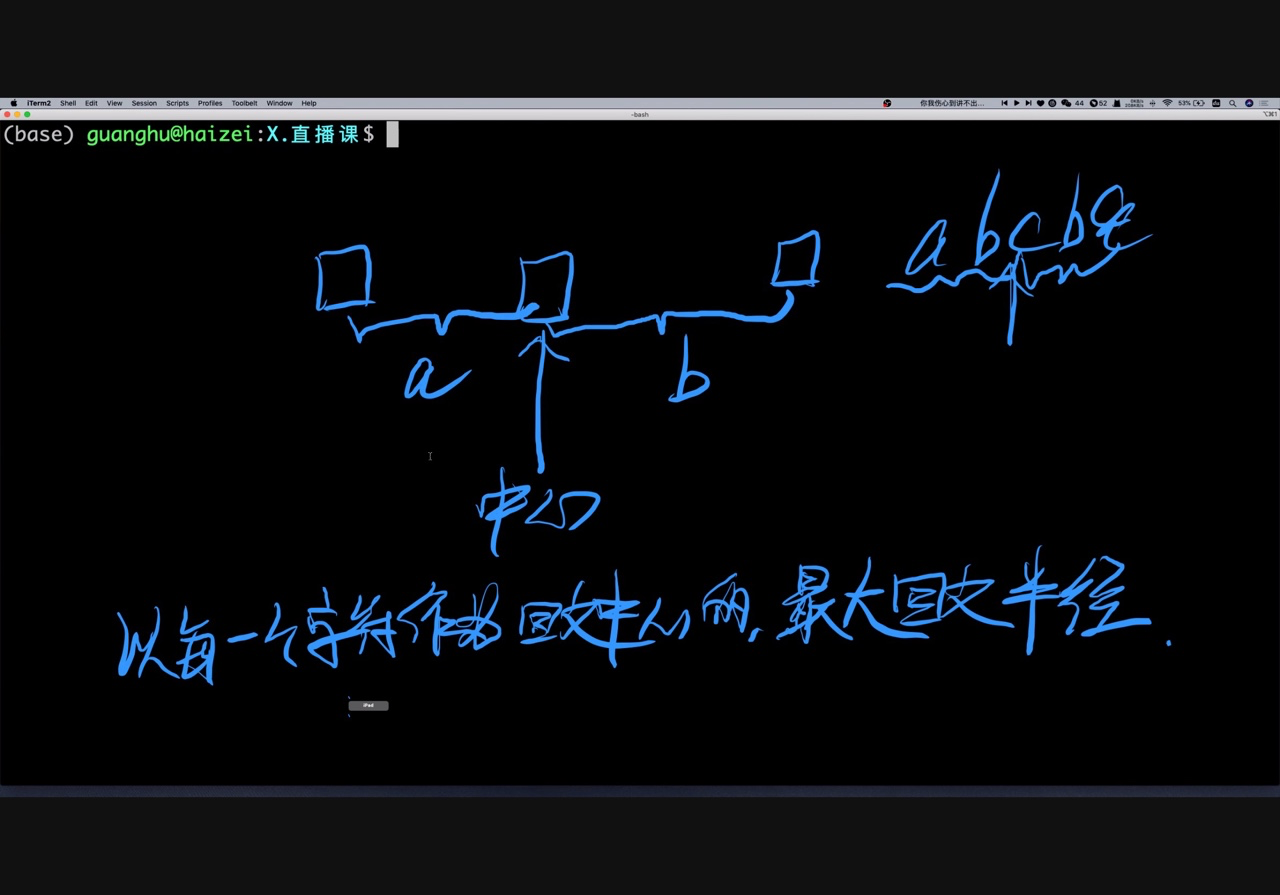 iTerm2 Shell Edit View Session Scripts Profiles Toolbelt Window Help 你我伤心到讲不出... 44 52 53%
-bash ⌥⌘1
(base) guanghu@haizei:X.直播课$
abcba
a b
中心
以每一个字符作为回文中心的,最大回文半径.
iPad